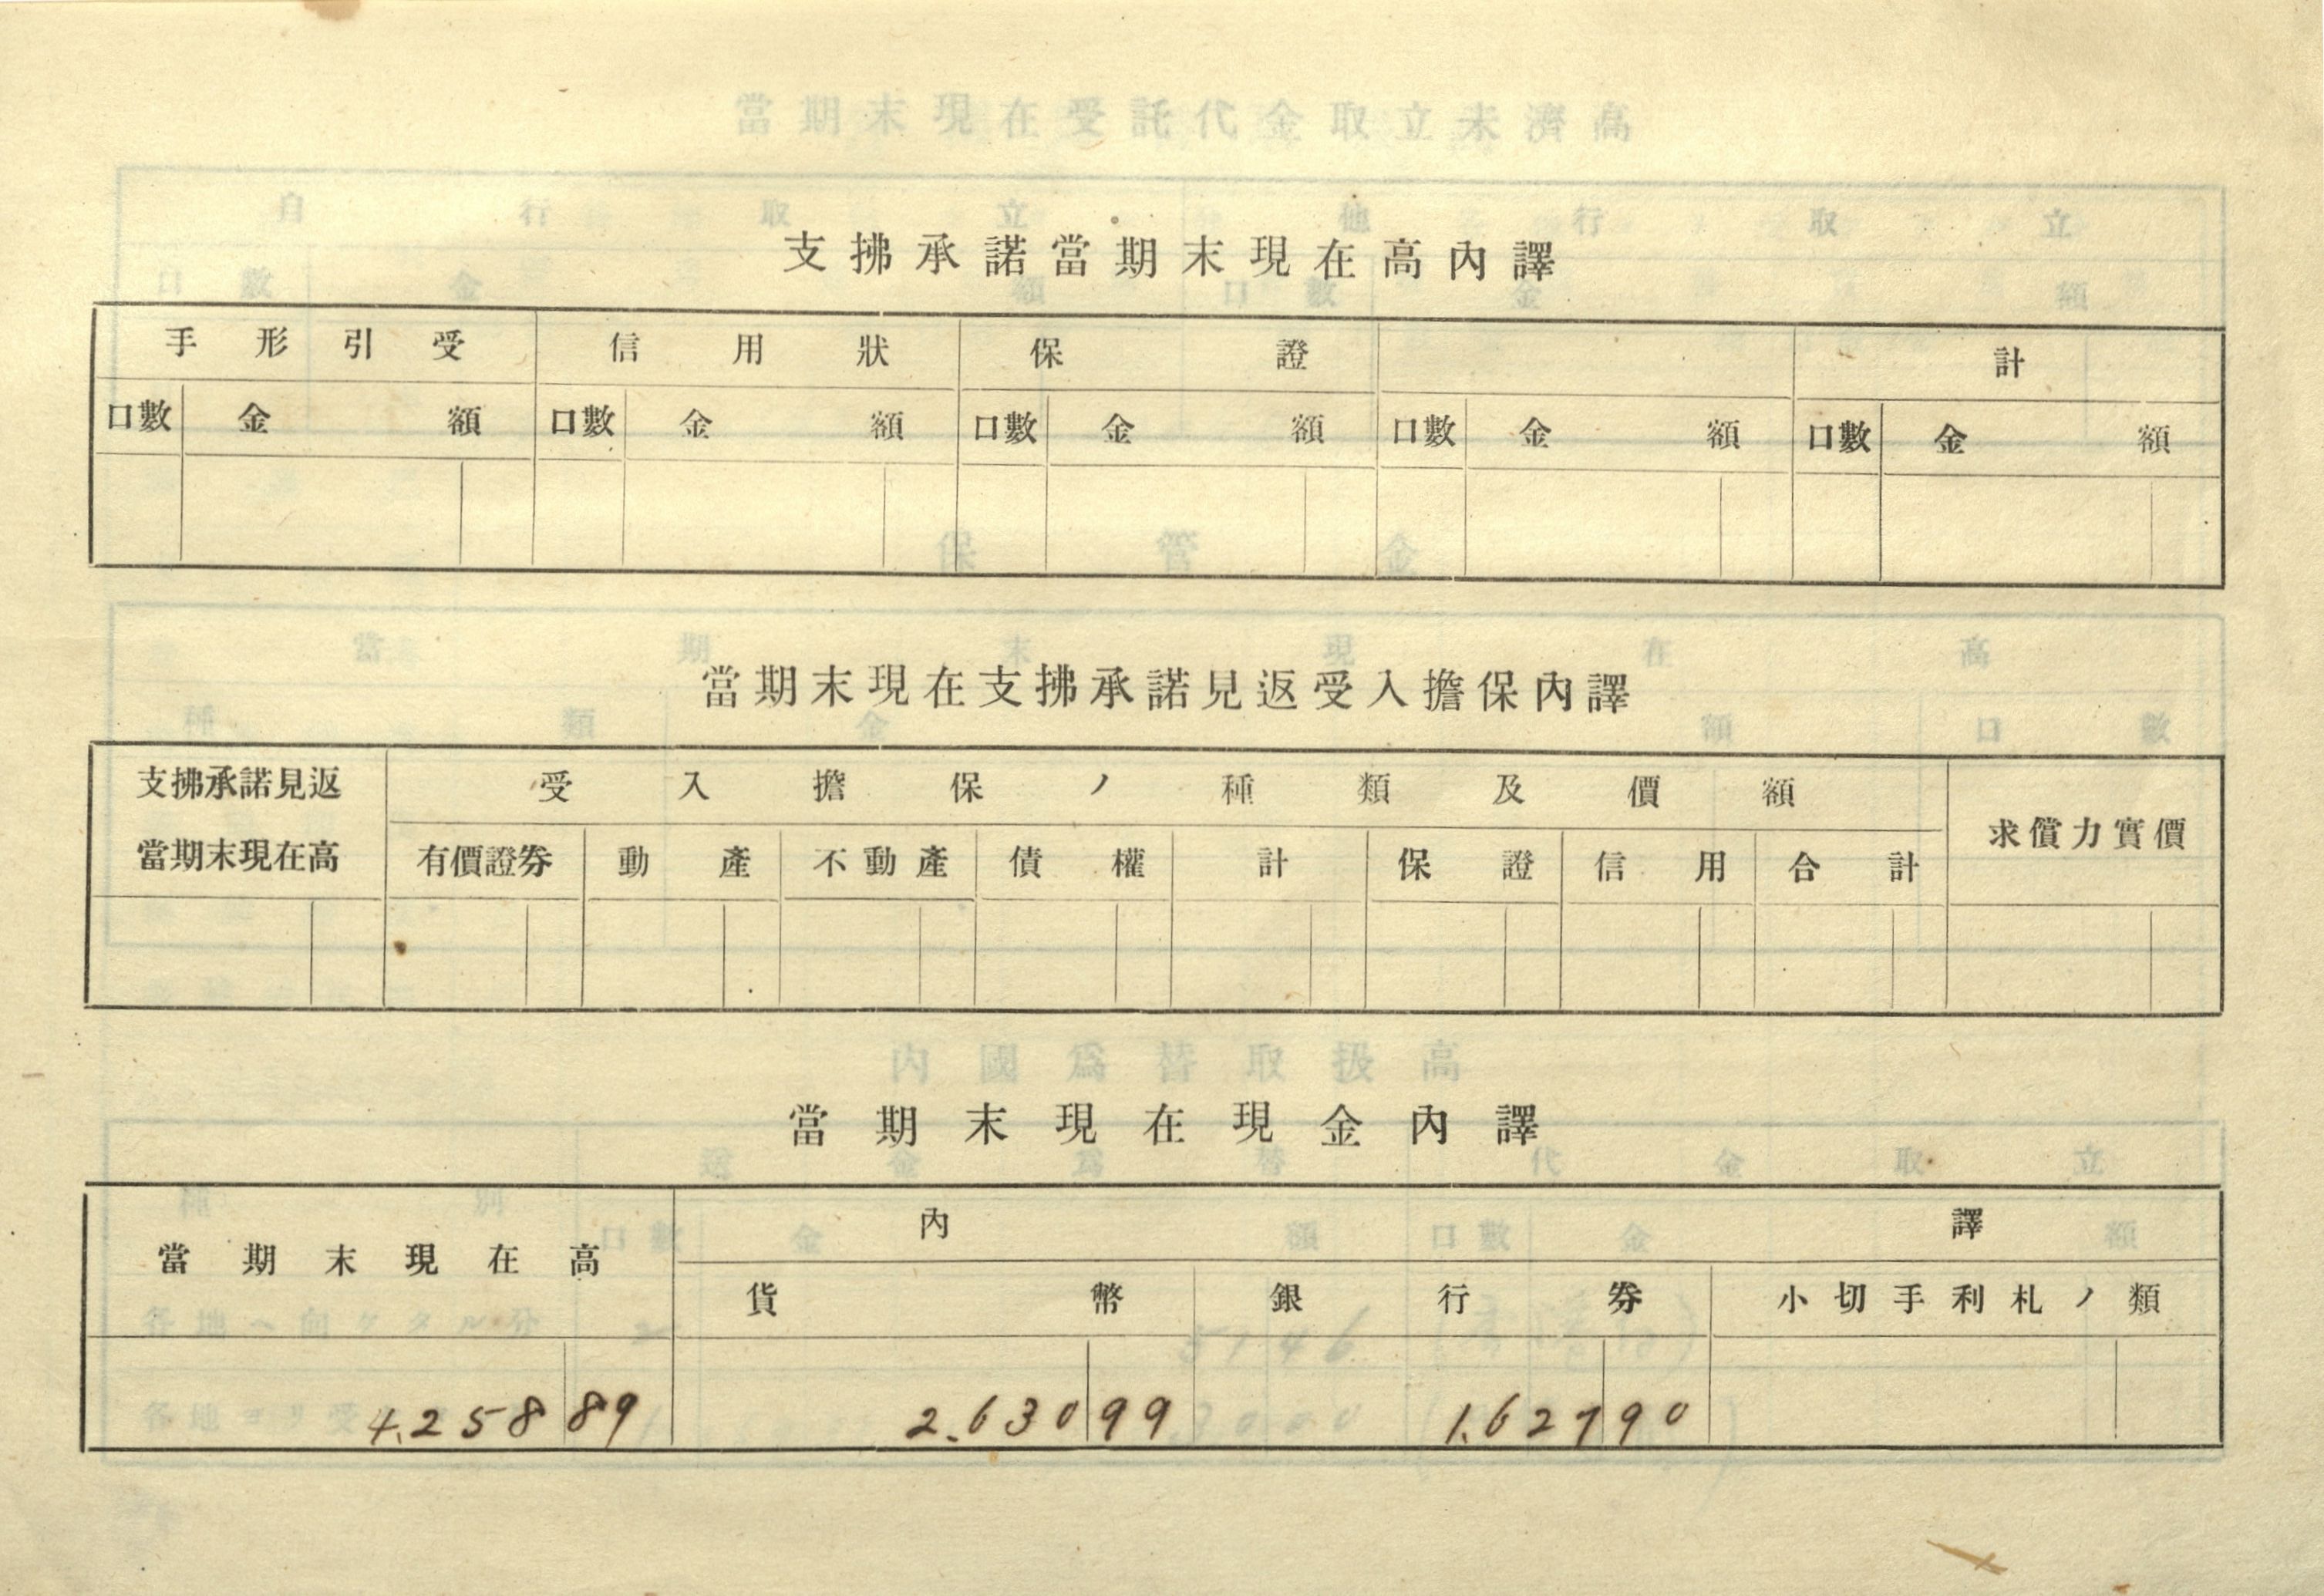 支拂承諾當期末現在高內譯
手形引受 信用狀 保證 計
口數 金額 口數 金額 口數 金額 口數 金額 口數 金額
當期末現在支拂承諾見返受入擔保內譯
支拂承諾見返 受入擔保ノ種類及價額
當期末現在高 有價證券 動產 不動產 債權 計 保證 信用 合計 求償力實價
當期末現在現金內譯
當期末現在高 內譯
貨幣 銀行券 小切手利札ノ類
4.258 89 2.630 99 1.627 90